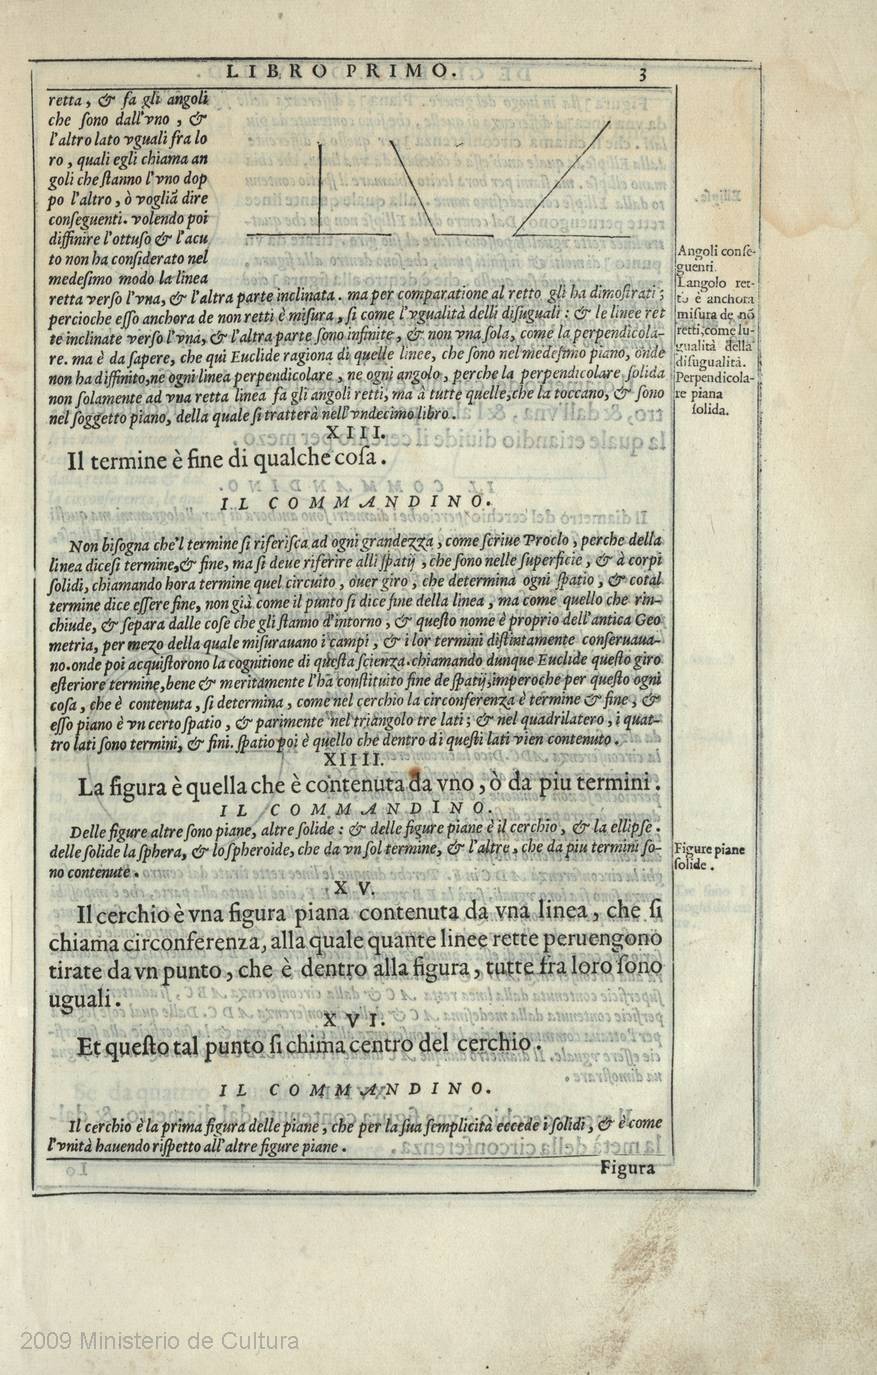 LIBRO PRIMO. 3
retta, & fa gli angoli
che ſono dall'vno, &
l'altro lato vguali fra lo
ro, quali egli chiama an
goli che ſtanno l'vno dop
po l'altro, ò vogliā dire
conſeguenti. volendo poi
diffinire l'ottuſo & l'acu
to non ha conſiderato nel
medeſimo modo la linea
retta verſo l'vna, & l'altra parte inclinata. ma per comparatione al retto gli ha dimoſtrati;
percioche eſſo anchora de non retti è miſura, ſi come l'vgualità delli diſuguali: & le linee ret
te inclinate verſo l'vna, & l'altra parte ſono infinite, & non vna ſola, come la perpendicola-
re. ma è da ſapere, che quì Euclide ragiona di quelle linee, che ſono nel medeſimo piano, onde
non ha diffinito, ne ogni linea perpendicolare, ne ogni angolo, perche la perpendicolare ſolida
non ſolamente ad vna retta linea fa gli angoli retti, ma à tutte quelle, che la toccano, & ſono
nel ſoggetto piano, della quale ſi tratterà nell'vndecimo libro.
Angoli conſe-
guenti.
L'angolo ret-
to è anchora
miſura de nō
retti, come l'u-
gualità della
diſugualità.
Perpendicola-
re piana
ſolida.
XIII.
Il termine è fine di qualche coſa.
IL COMMANDINO.
Non biſogna che'l termine ſi riferiſca ad ogni grandezza, come ſcriue Proclo, perche della
linea diceſi termine, & fine, ma ſi deue riferire alli ſpatij, che ſono nelle ſuperficie, & à corpi
ſolidi, chiamando hora termine quel circuito, ouer giro, che determina ogni ſpatio, & cotal
termine dice eſſere fine, non già come il punto ſi dice fine della linea, ma come quello che rin-
chiude, & ſepara dalle coſe che gli ſtanno d'intorno, & queſto nome è proprio dell'antica Geo
metria, per mezo della quale miſurauano i campi, & i lor termini diſtintamente conſeruaua-
no. onde poi acquiſtorono la cognitione di queſta ſcienza. chiamando dunque Euclide queſto giro
eſteriore termine, bene & meritamente l'ha conſtituito fine de ſpatij, imperoche per queſto ogni
coſa, che è contenuta, ſi determina, come nel cerchio la circonferenza è termine & fine, &
eſſo piano è vn certo ſpatio, & parimente nel triangolo tre lati; & nel quadrilatero, i quat-
tro lati ſono termini, & fini. ſpatio poi è quello che dentro di queſti lati vien contenuto.
XIIII.
La figura è quella che è contenuta da vno, ò da piu termini.
IL COMMANDINO.
Delle figure altre ſono piane, altre ſolide: & delle figure piane è il cerchio, & la ellipſe.
delle ſolide la ſphera, & lo ſpheroide, che da vn ſol termine, & l'altre, che da piu termini ſo-
no contenute.
Figure piane
ſolide.
XV.
Il cerchio è vna figura piana contenuta da vna linea, che ſi
chiama circonferenza, alla quale quante linee rette peruengono
tirate da vn punto, che è dentro alla figura, tutte fra loro ſono
uguali.
XVI.
Et queſto tal punto ſi chima centro del cerchio.
IL COMMANDINO.
Il cerchio è la prima figura delle piane, che per la ſua ſemplicità eccede i ſolidi, & è come
l'vnità hauendo riſpetto all'altre figure piane.
Figura
2009 Ministerio de Cultura